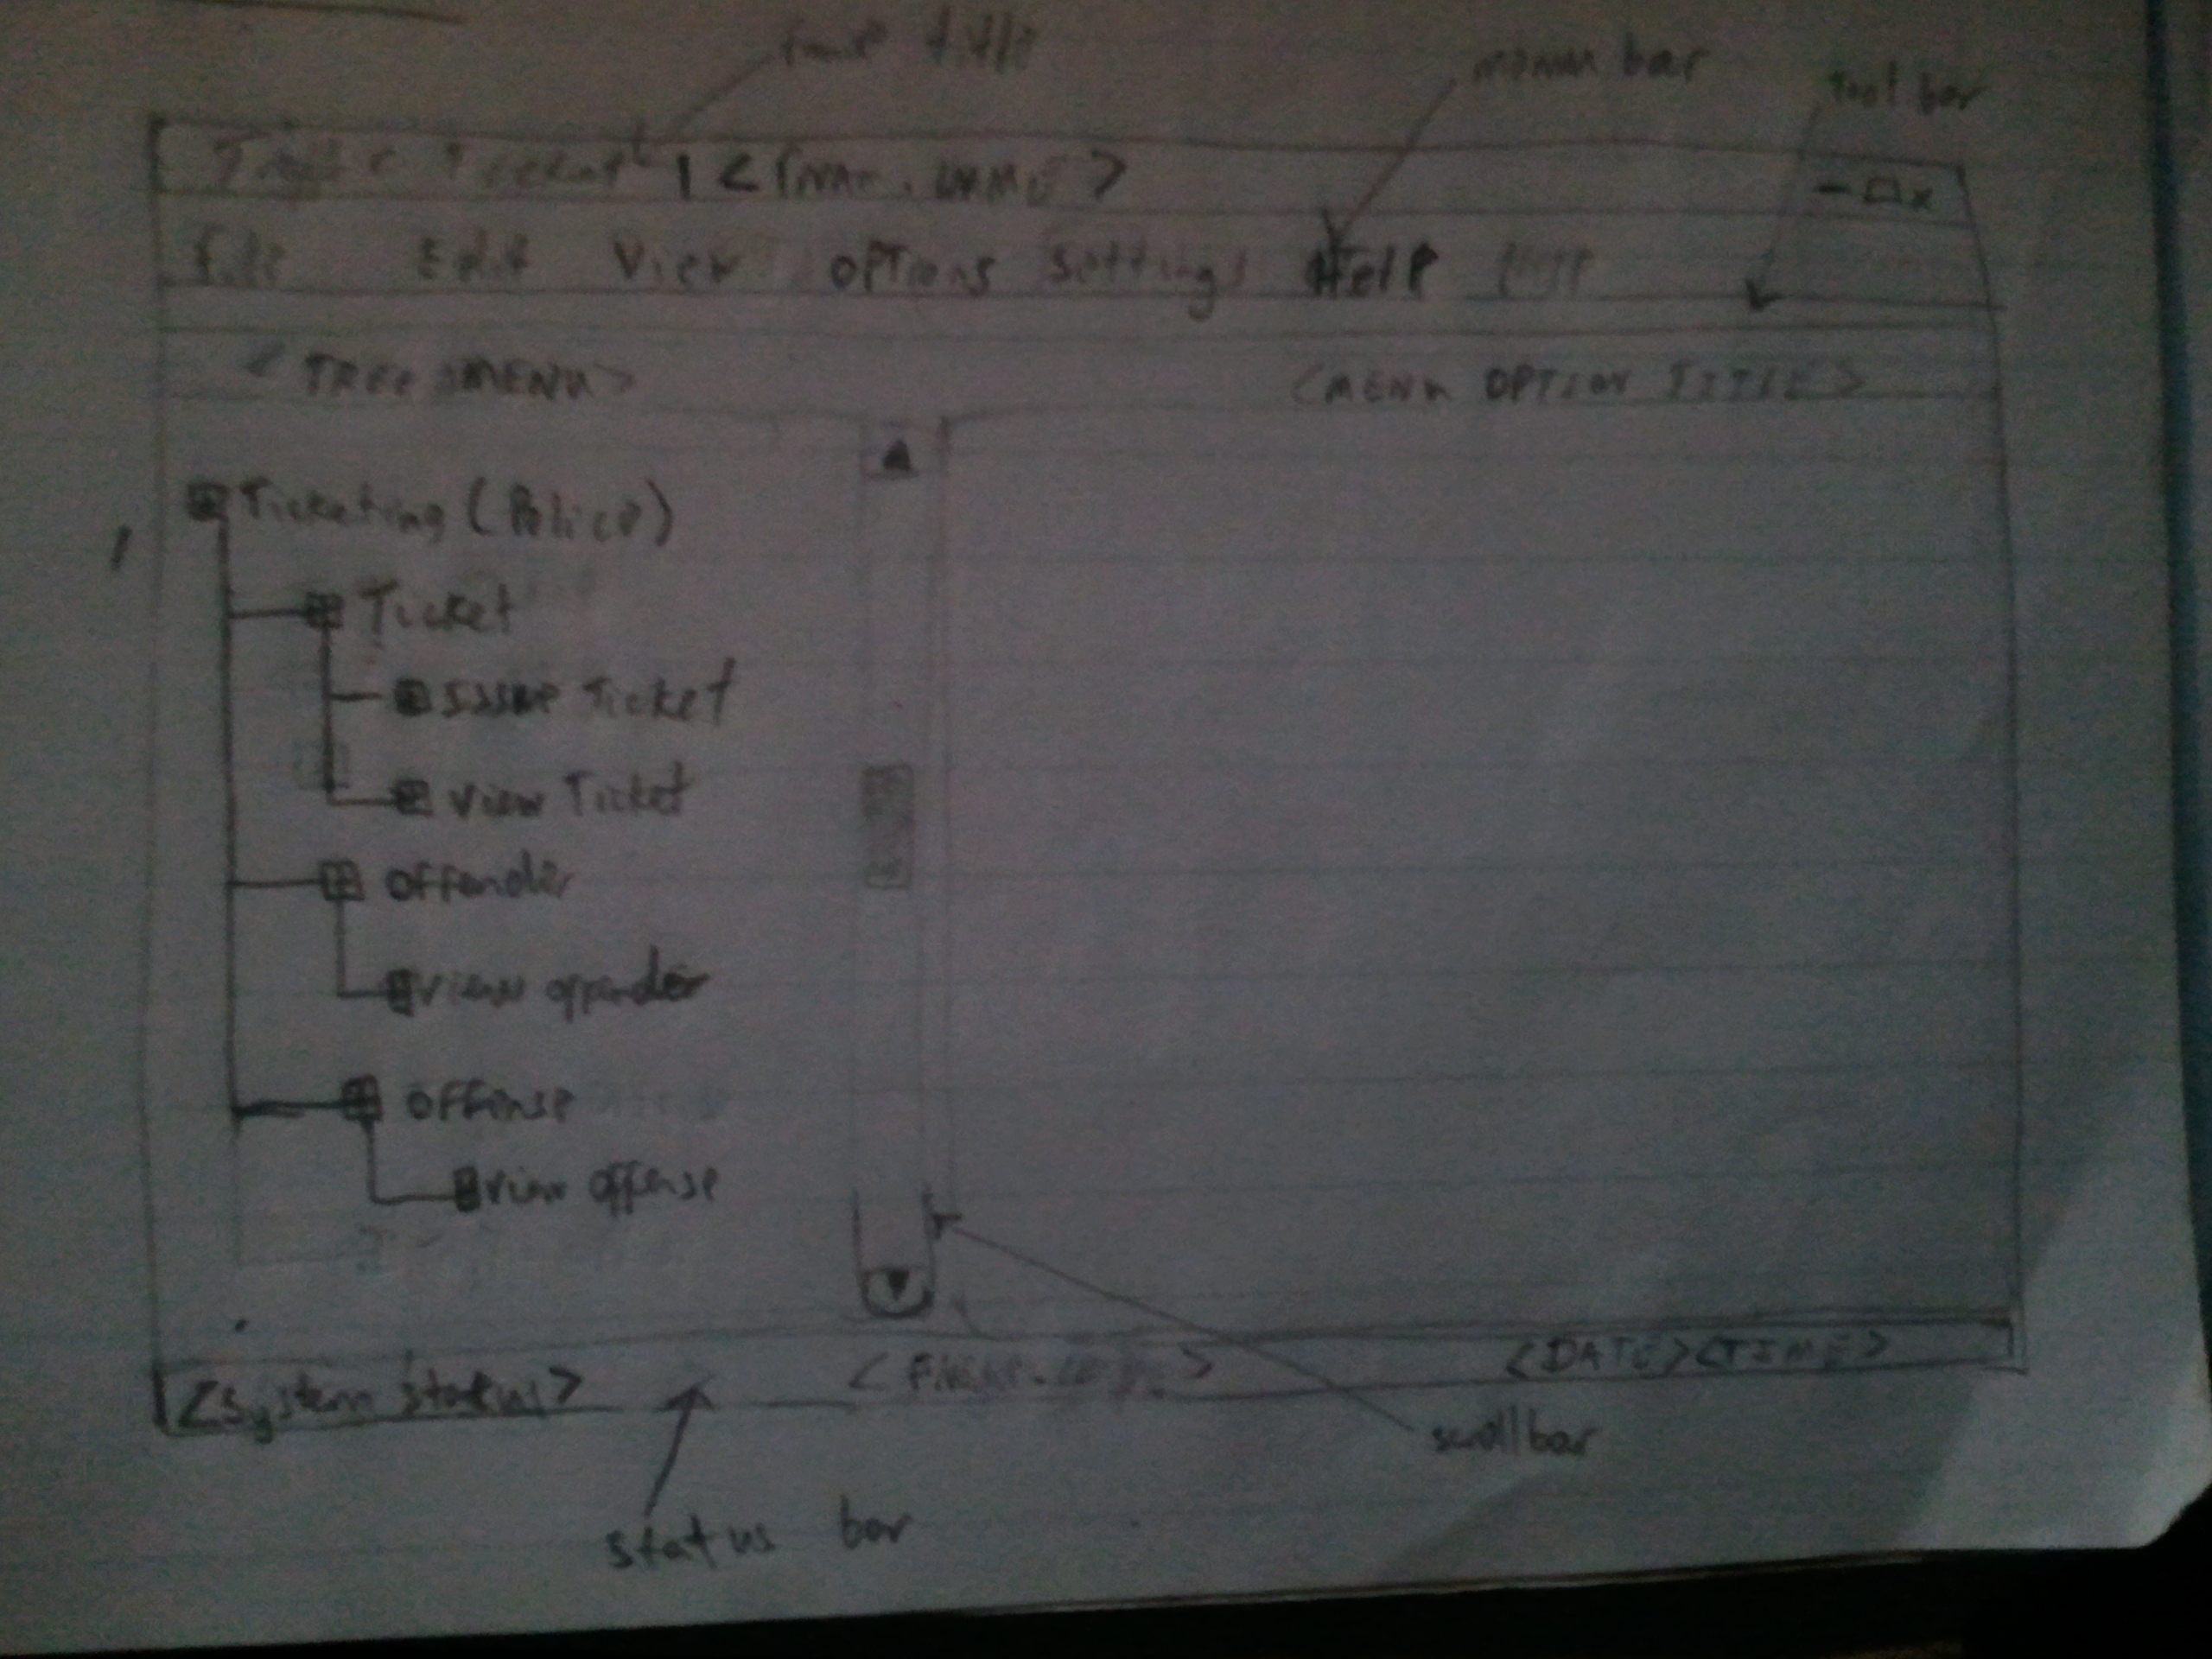 title
menu bar
tool bar
Ticket | < >
- □ x
file Edit View OPTions Settings Help
< TREE MENU>
<MENU OPTION TITLE>
Ticketing (Police)
Ticket
Issue Ticket
View Ticket
offender
view offender
offense
view offense
<System status>
<DATE><TIME>
scrollbar
status bar